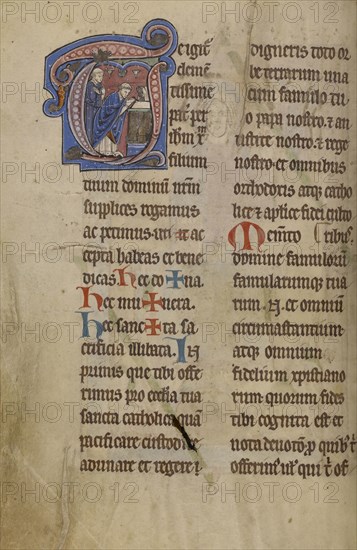 Te igit̃
clemẽ
tissime
pat̃ per
ihm xp̃m
filium
tuum dominũ nr̃m
supplices rogamus
ac petimus uti
accepta habeas et bene
dicas hec do✝na
hec mu✝nera
hec sanc✝ta sa
crificia illibata. In
primis que tibi offe
rimus pro ecclia tua
sancta catholica quã
pacificare custodire
adunare et regere
digneris toto or
be terrarum una
cum famulo tu
o papa nostro .et an
tistite nostro .et rege
nostro et omnibus
orthodoxis atq; catho
lice et aplice fidei cultoribus.
Memẽto
domine famuloru
famularumque tua
rum .N. et omniũ
circumastantium
atq; omnium
fidelium xpistiano
rum quorum fides
tibi cognita est et
nota deuotio p quib;
offerim; uł qui t̃ of